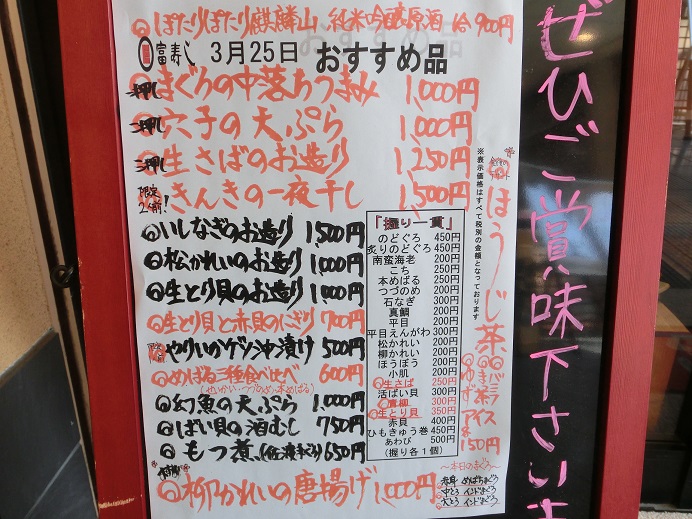 ◎ぽたりぽたり麒麟山 純米吟醸原酒 一合 900円
富寿し 3月25日 おすすめ品
一押し まぐろの中落ちつまみ 1,000円
一押し 穴子の天ぷら 1,000円
一押し 生さばのお造り 1,250円
限定2人前! きんきの一夜干し 1,500円
◎いしなぎのお造り 1,500円
◎松かれいのお造り 1,000円
◎生とり貝のお造り 1,000円
◎生とり貝と赤貝のにぎり 700円
やりいかゲソ沖漬け 500円
◎めばる三種食べ比べ 600円
◎幻魚の天ぷら 1,000円
◎ばい貝の酒むし 750円
◎もつ煮 650円
◎柳かれいの唐揚げ 1,000円
「握り一貫」
のどぐろ 450円
炙りのどぐろ 450円
南蛮海老 200円
こち 250円
本めばる 250円
つづのめ 200円
石なぎ 300円
真鯛 200円
平目 200円
平目えんがわ 300円
松かれい 200円
柳かれい 200円
ほうぼう 200円
小肌 200円
◎生さば 250円
活ばい貝 300円
◎青柳 300円
◎生とり貝 350円
赤貝 400円
ひもきゅう巻 450円
あわび 500円
(握り各1個)
※表示価格はすべて税別の金額となっております
ほうじ茶
アイス
150円
〜本日のまぐろ〜
赤身 めばちまぐろ
中とろ インドまぐろ
大とろ インドまぐろ
ぜひご賞味下さいま